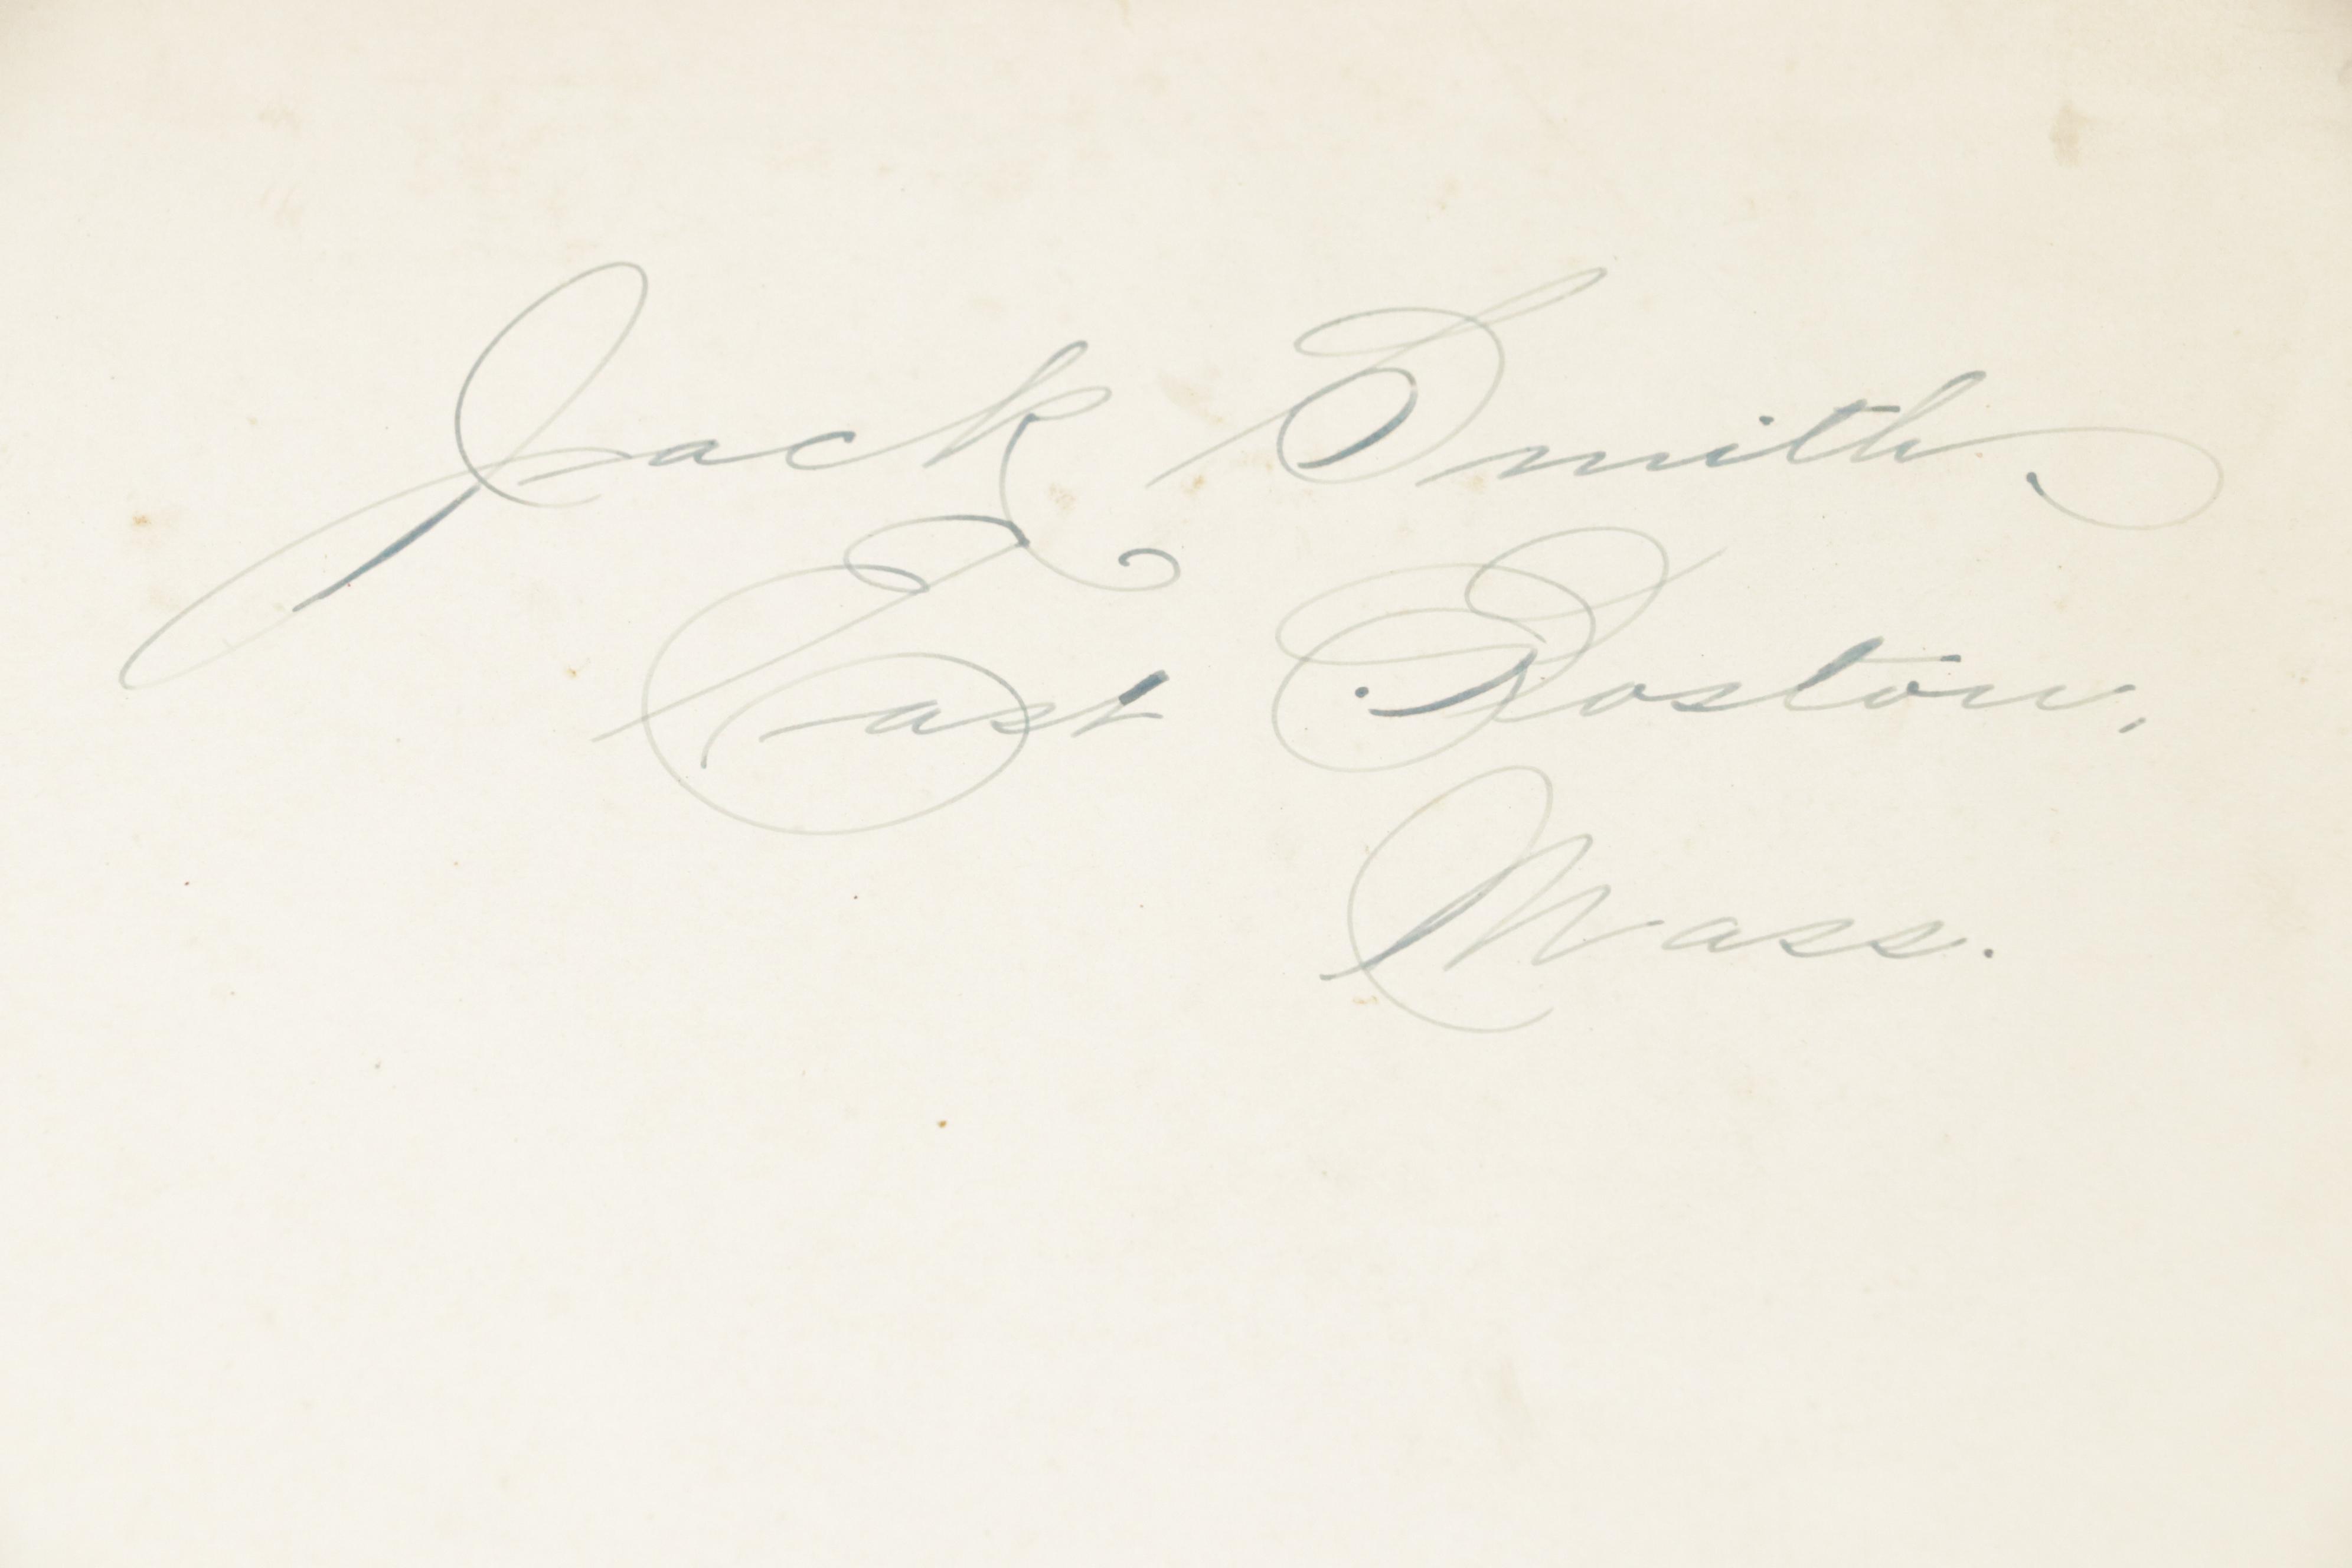 Jack Smith
East Boston,
Mass.